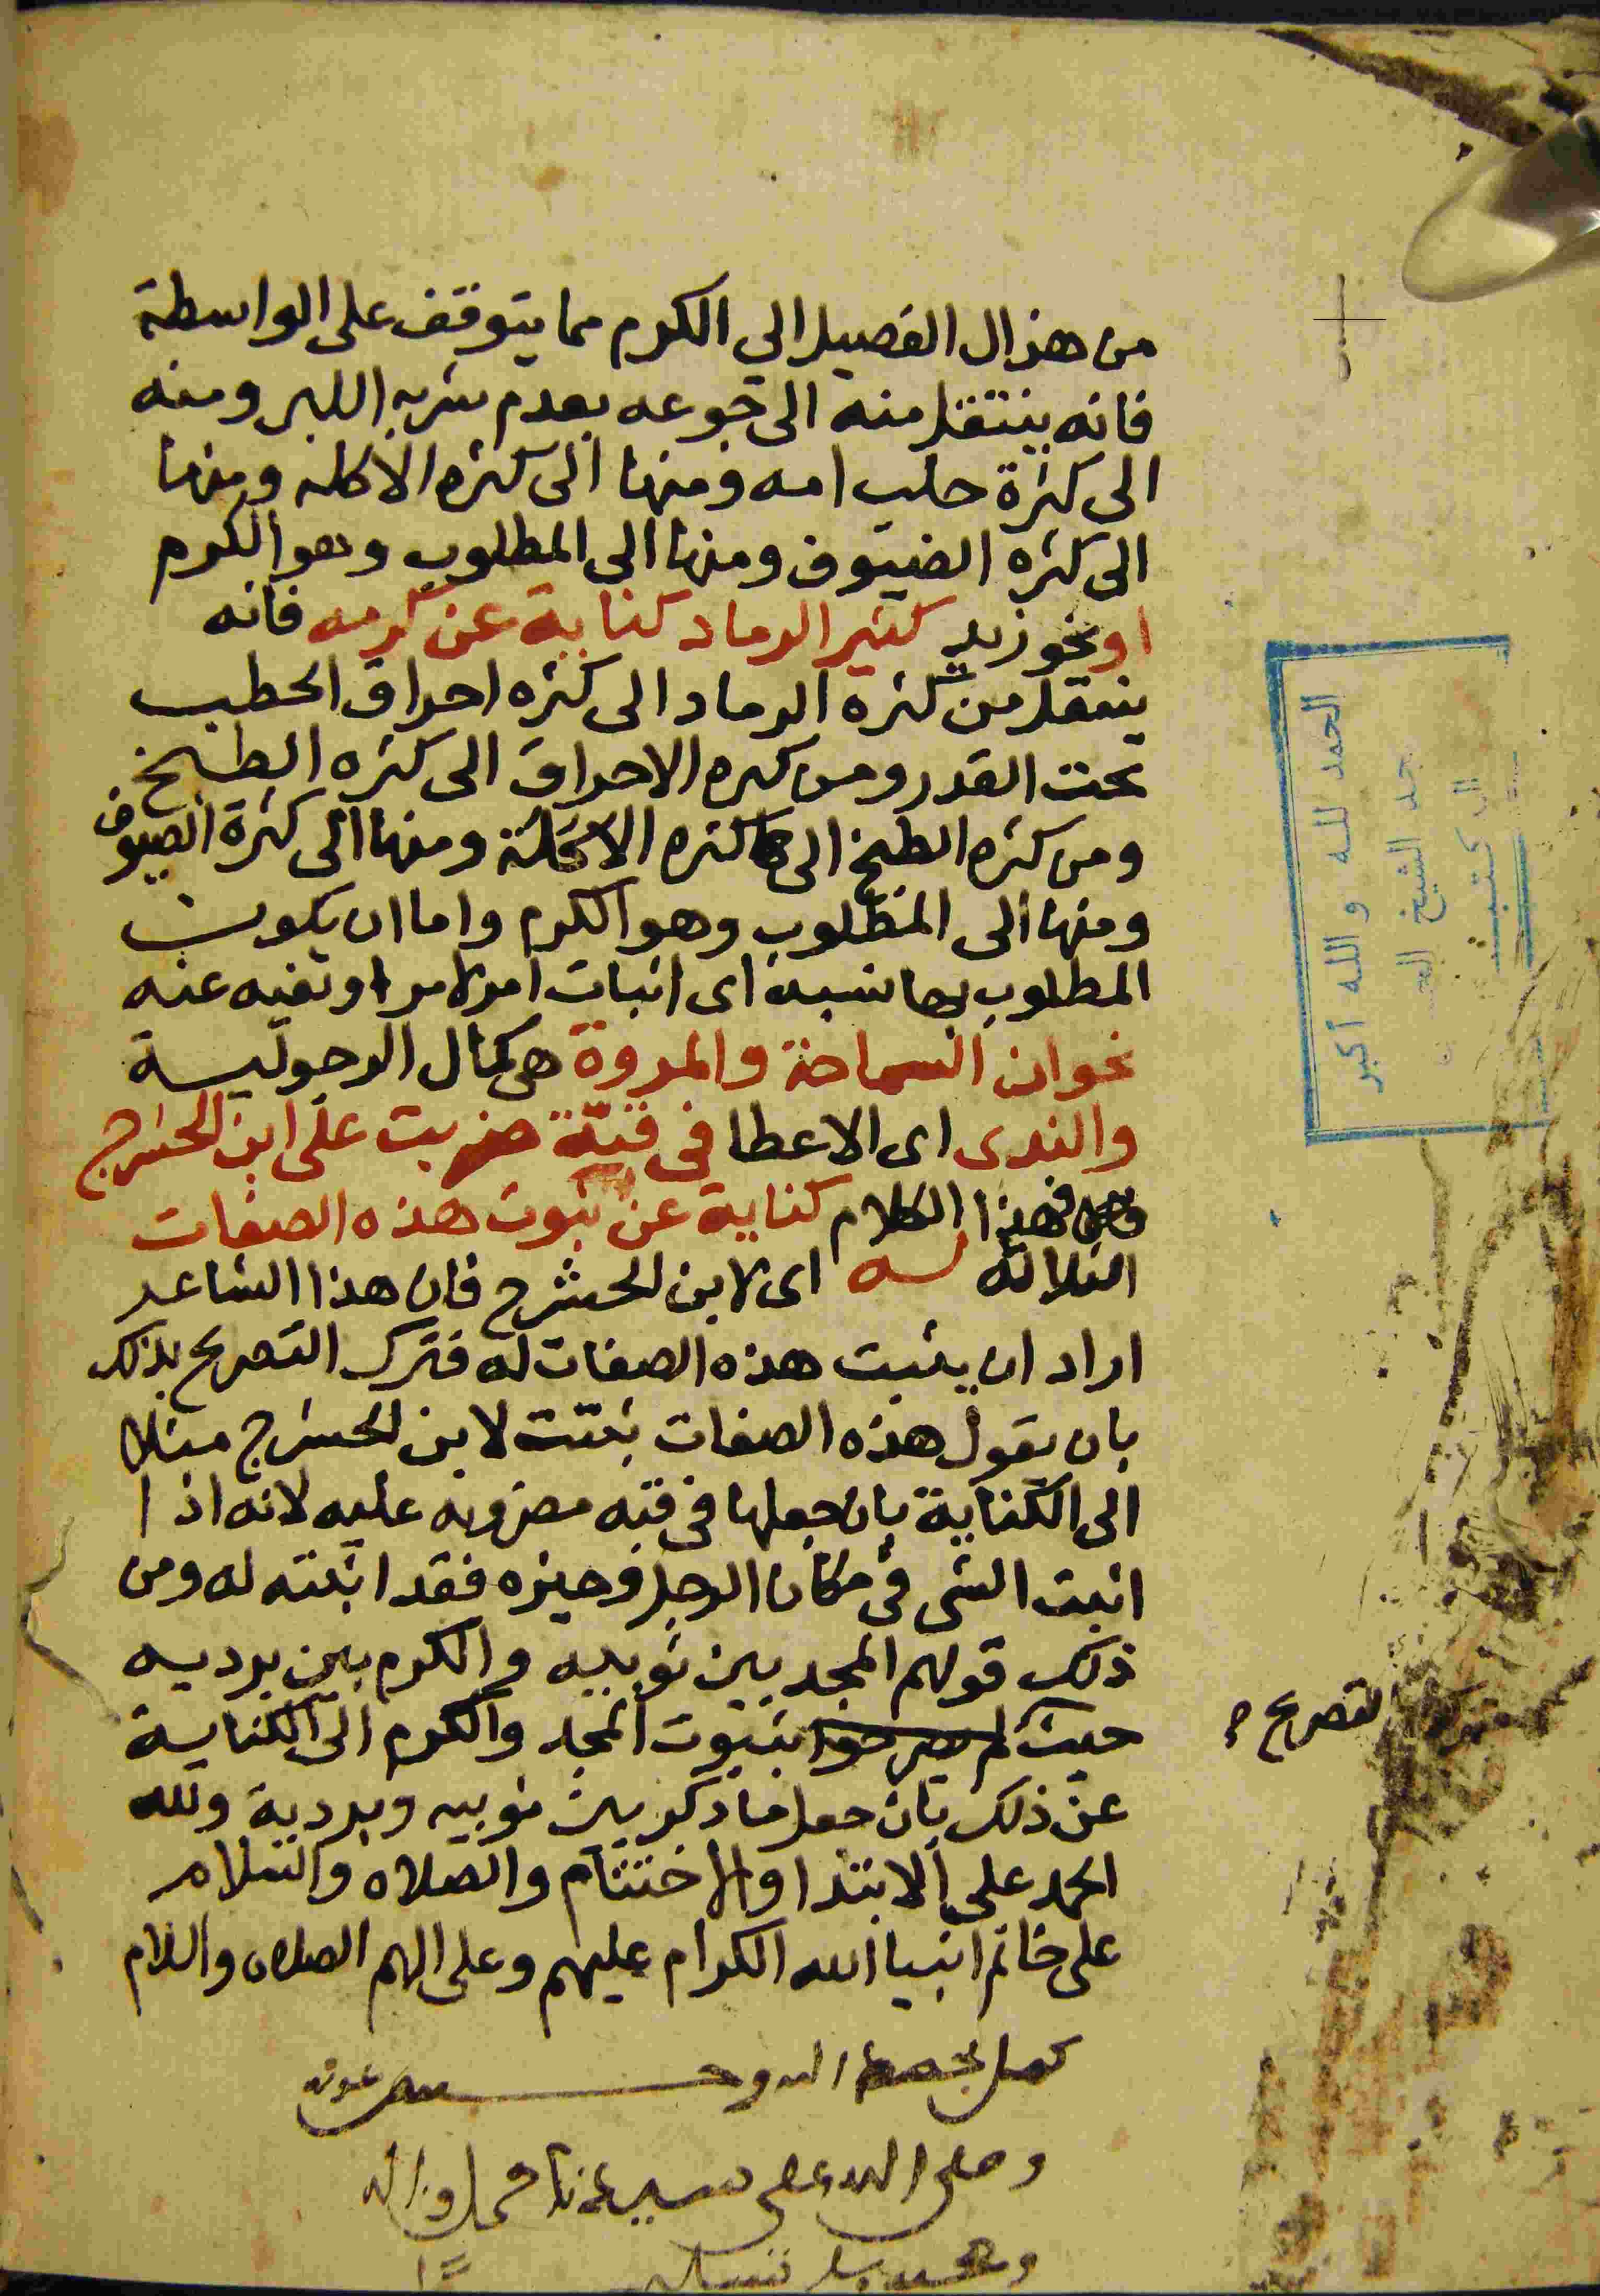 من هزال الفصيل الي الكرم مما يتوقف على الواسطة
فانه ينتقل منه الى جوعه بعدم شربه اللبن ومنه
الى كثرة حلب امه ومنها الى كثره الاكله ومنها
الى كثره الضيوف ومنها الى المطلوب وهو الكرم
او نحو زيد كثير الرماد كناية عن كرمه فانه
ينتقل من كثره الرماد الى كثره احراق الحطب
تحت القدر ومن كثره الاحراق الى كثره الطبخ
ومن كثره الطبخ الى كثره الاكلة ومنها الى كثرة الضيوف
ومنها الى المطلوب وهو الكرم واما ان يكون
المطلوب بها نسبه اى اثبات امر لامر او نفيه عنه
نحو ان السماحة والمروة هى كمال الرجولية
والندى اى الاعطا فى قبة ضربت على ابن الحشرج
فهذا الكلام كناية عن ثبوت هذه الصفات
الثلاثة له اى لابن الحشرج فان هذا الشاعر
اراد ان يثبت هذه الصفات له فترك التصريح بذلك
بان يقول هذه الصفات ثبتت لابن الحشرج مثلا
الى الكناية بان جعلها فى قبه مضروبه عليه لانه اذا
اثبت الشى فى مكان الرجل وحيزه فقد اثبته له ومن
ذلك قولهم المجد بين ثوبيه والكرم بين برديه
حيث لم يصرحوا بثبوت المجد والكرم الى الكناية
التصريح
عن ذلك بان جعل ما ذكر بين ثوبيه وبردية ولله
الحمد على الابتدا والاختتام والصلاه والسلام
على خاتم انبيا الله الكرام عليهم وعلى الهم الصلاه والسلام
كمل بحمد الله وحسن عونه
وصلى الله على سيدنا محمد واله
وصحبه وسلم تسليما
الحمد لله والله أكبر